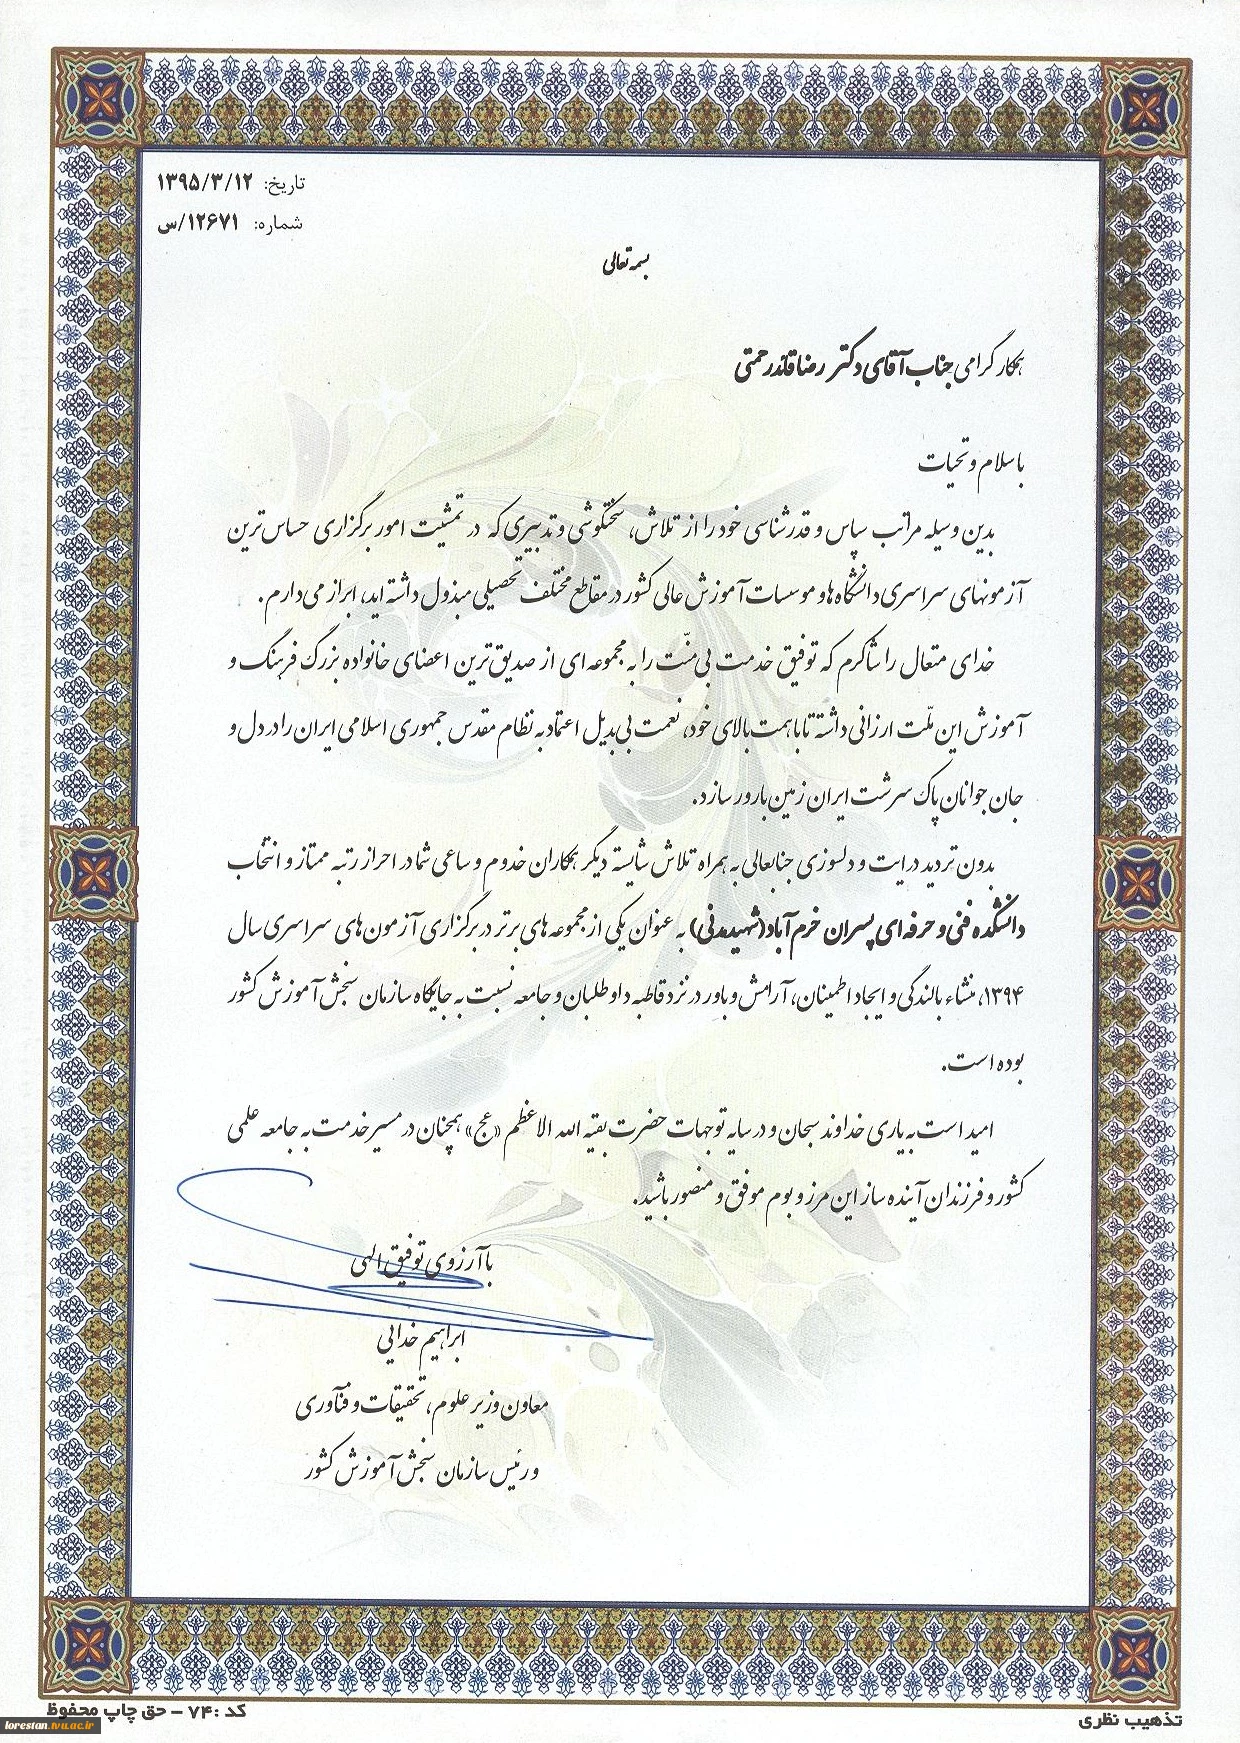 تاریخ: ۱۳۹۵/۳/۱۲
شماره: ۱۲۶۷۱/س
بسمه تعالی
همکار گرامی جناب آقای دکتر رضا قائدرحمتی
با سلام و تحیات
بدین وسیله مراتب سپاس و قدرشناسی خود را از تلاش، سختکوشی و تدبیری که در تمشیت امور برگزاری حساس ترین
آزمونهای سراسری دانشگاه ها و موسسات آموزش عالی کشور در مقاطع مختلف تحصیلی مبذول داشته اید، ابراز می دارم.
خدای متعال را شاکرم که توفیق خدمت بی منّت را به مجموعه ای از صدیق ترین اعضای خانواده بزرگ فرهنگ و
آموزش این ملّت ارزانی داشته تا با همت بالای خود، نعمت بی بدیل اعتماد به نظام مقدس جمهوری اسلامی ایران را در دل و
جان جوانان پاک سرشت ایران زمین بارور سازد.
بدون تردید درایت و دلسوزی جنابعالی به همراه تلاش شایسته دیگر همکاران خدوم و ساعی شما در احراز رتبه ممتاز و انتخاب
دانشکده فنی و حرفه ای پسران خرم آباد(شهید مدنی) به عنوان یکی از مجموعه های برتر در برگزاری آزمون های سراسری سال
۱۳۹۴، منشاء بالندگی و ایجاد اطمینان، آرامش و باور در نزد قاطبه داوطلبان و جامعه نسبت به جایگاه سازمان سنجش آموزش کشور
بوده است.
امید است به یاری خداوند سبحان و در سایه توجهات حضرت بقیه الله الاعظم «عج» همچنان در مسیر خدمت به جامعه علمی
کشور و فرزندان آینده ساز این مرز و بوم موفق و منصور باشید.
با آرزوی توفیق الهی
ابراهیم خدایی
معاون وزیر علوم، تحقیقات و فنّآوری
و رئیس سازمان سنجش آموزش کشور
تذهیب نظری
کد :۷۴ - حق چاپ محفوظ
lorestan.tvu.ac.ir